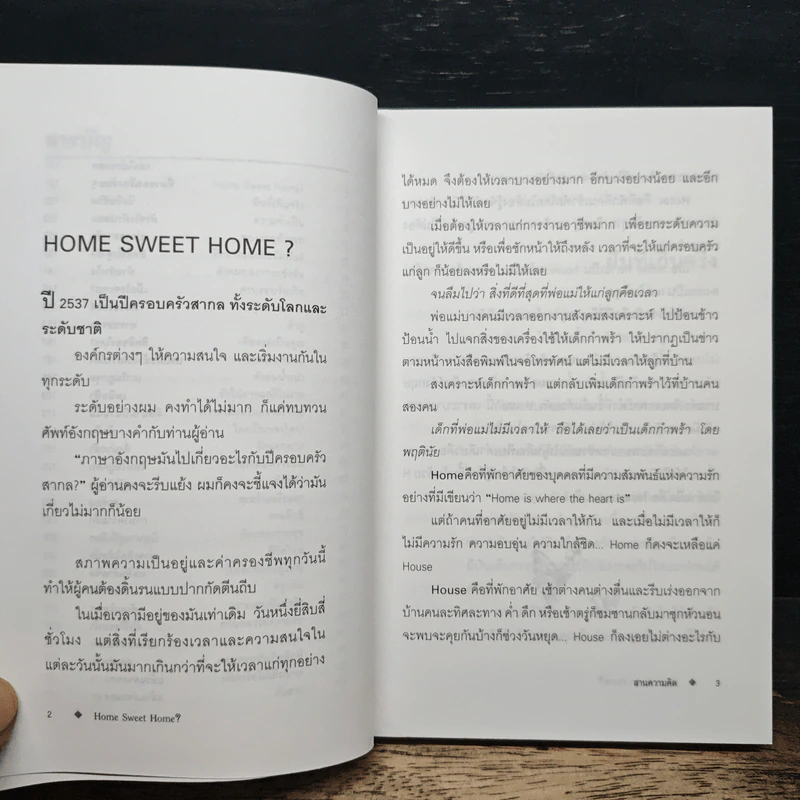 HOME SWEET HOME ?
ปี 2537 เป็นปีครอบครัวสากล ทั้งระดับโลกและ
ระดับชาติ
องค์กรต่างๆ ให้ความสนใจ และเริ่มงานกันใน
ทุกระดับ
ระดับอย่างผม คงทำได้ไม่มาก ก็แค่ทบทวน
ศัพท์อังกฤษบางคำกับท่านผู้อ่าน
“ภาษาอังกฤษมันไปเกี่ยวอะไรกับปีครอบครัว
สากล?” ผู้อ่านคงจะรีบแย้ง ผมก็คงจะชี้แจงได้ว่ามัน
เกี่ยวไม่มากก็น้อย
สภาพความเป็นอยู่และค่าครองชีพทุกวันนี้
ทำให้ผู้คนต้องดิ้นรนแบบปากกัดตีนถีบ
ในเมื่อเวลามีอยู่ของมันเท่าเดิม วันหนึ่งยี่สิบสี่
ชั่วโมง แต่สิ่งที่เรียกร้องเวลาและความสนใจใน
แต่ละวันนั้นมันมากเกินกว่าที่จะให้เวลาแก่ทุกอย่าง
2 ◆ Home Sweet Home?
ได้หมด จึงต้องให้เวลาบางอย่างมาก อีกบางอย่างน้อย และอีก
บางอย่างไม่ให้เลย
เมื่อต้องให้เวลาแก่การงานอาชีพมาก เพื่อยกระดับความ
เป็นอยู่ให้ดีขึ้น หรือเพื่อชักหน้าให้ถึงหลัง เวลาที่จะให้แก่ครอบครัว
แก่ลูก ก็น้อยลงหรือไม่มีให้เลย
จนลืมไปว่า สิ่งที่ดีที่สุดที่พ่อแม่ให้แก่ลูกคือเวลา
พ่อแม่บางคนมีเวลาออกงานสังคมสงเคราะห์ ไปป้อนข้าว
ป้อนน้ำ ไปแจกสิ่งของเครื่องใช้ให้เด็กกำพร้า ให้ปรากฏเป็นข่าว
ตามหน้าหนังสือพิมพ์ในจอโทรทัศน์ แต่ไม่มีเวลาให้ลูกที่บ้าน
สงเคราะห์เด็กกำพร้า แต่กลับเพิ่มเด็กกำพร้าไว้ที่บ้านคน
สองคน
เด็กที่พ่อแม่ไม่มีเวลาให้ ถือได้เลยว่าเป็นเด็กกำพร้า โดย
พฤตินัย
Home คือที่พักอาศัยของบุคคลที่มีความสัมพันธ์แห่งความรัก
อย่างที่มีเขียนว่า “Home is where the heart is”
แต่ถ้าคนที่อาศัยอยู่ไม่มีเวลาให้กัน และเมื่อไม่มีเวลาให้ก็
ไม่มีความรัก ความอบอุ่น ความใกล้ชิด... Home ก็คงจะเหลือแค่
House
House คือที่พักอาศัย เช้าต่างคนต่างตื่นและรีบเร่งออกจาก
บ้านคนละทิศละทาง ค่ำ ดึก หรือเช้าตรู่ก็ซมซานกลับมาซุกหัวนอน
จะพบจะคุยกันบ้างก็ช่วงวันหยุด... House ก็ลงเอยไม่ต่างอะไรกับ
สานความคิด ◆ 3